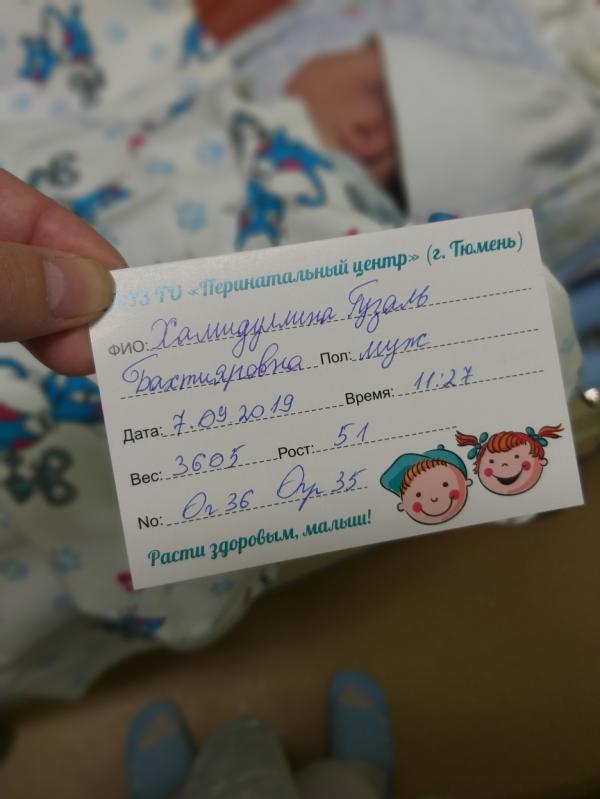 ТО «Перинатальный центр» (г. Тюмень)
ФИО: Хамидуллина Гузаль
Бахтияровна Пол: муж
Дата: 7.09.2019 Время: 11:27
Вес: 3605 Рост: 51
No: Ог 36 Огр 35
Расти здоровым, малыш!